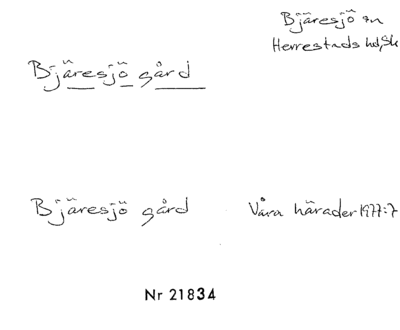 Bjäresjö sn
Herrestads hd, Sk
Bjäresjö gård
Bjäresjö gård
Våra härader 1977:7
Nr 21834